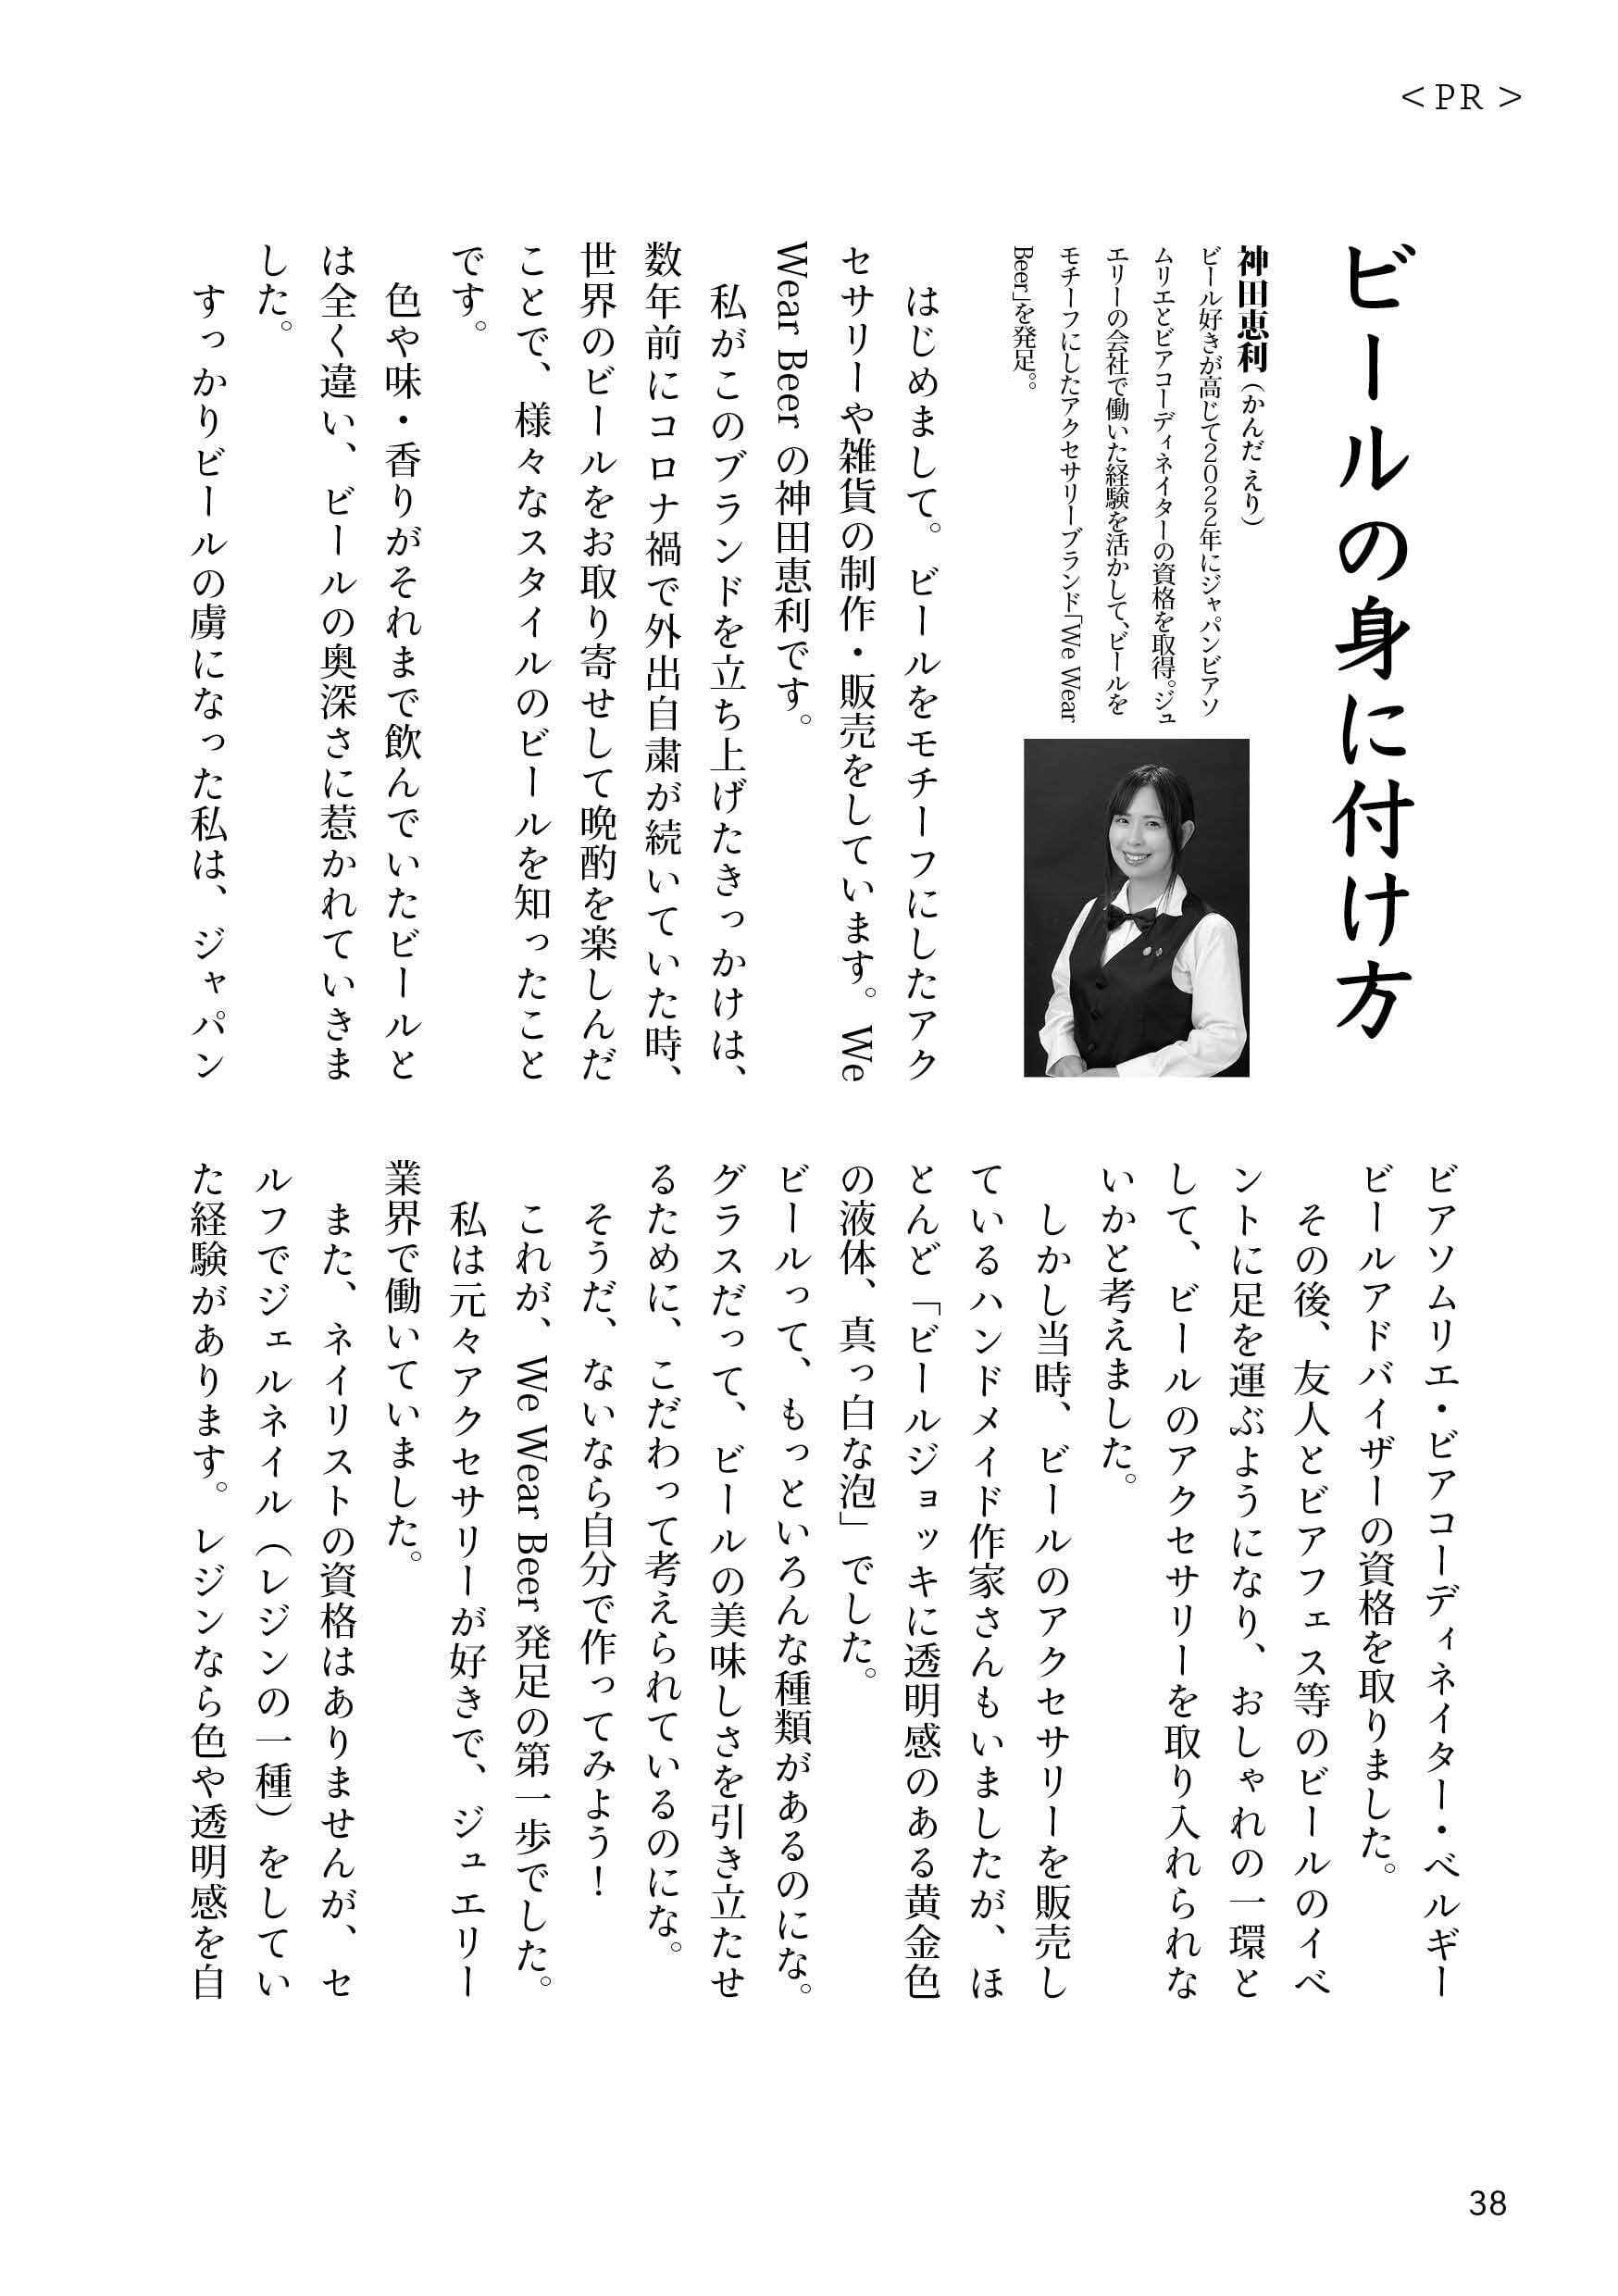 ＜PR＞
ビールの身に付け方
神田恵利（かんだ えり）
ビール好きが高じて2022年にジャパンビアソ
ムリエとビアコーディネイターの資格を取得。ジュ
エリーの会社で働いた経験を活かして、ビールを
モチーフにしたアクセサリーブランド「We Wear
Beer」を発足。。
はじめまして。ビールをモチーフにしたアク
セサリーや雑貨の制作・販売をしています。We
Wear Beer の神田恵利です。
私がこのブランドを立ち上げたきっかけは、
数年前にコロナ禍で外出自粛が続いていた時、
世界のビールをお取り寄せして晩酌を楽しんだ
ことで、様々なスタイルのビールを知ったこと
です。
色や味・香りがそれまで飲んでいたビールと
は全く違い、ビールの奥深さに惹かれていきま
した。
すっかりビールの虜になった私は、ジャパン
ビアソムリエ・ビアコーディネイター・ベルギー
ビールアドバイザーの資格を取りました。
その後、友人とビアフェス等のビールのイベ
ントに足を運ぶようになり、おしゃれの一環と
して、ビールのアクセサリーを取り入れられな
いかと考えました。
しかし当時、ビールのアクセサリーを販売し
ているハンドメイド作家さんもいましたが、ほ
とんど「ビールジョッキに透明感のある黄金色
の液体、真っ白な泡」でした。
ビールって、もっといろんな種類があるのにな。
グラスだって、ビールの美味しさを引き立たせ
るために、こだわって考えられているのにな。
そうだ、ないなら自分で作ってみよう！
これが、We Wear Beer 発足の第一歩でした。
私は元々アクセサリーが好きで、ジュエリー
業界で働いていました。
また、ネイリストの資格はありませんが、セ
ルフでジェルネイル（レジンの一種）をしてい
た経験があります。レジンなら色や透明感を自
38